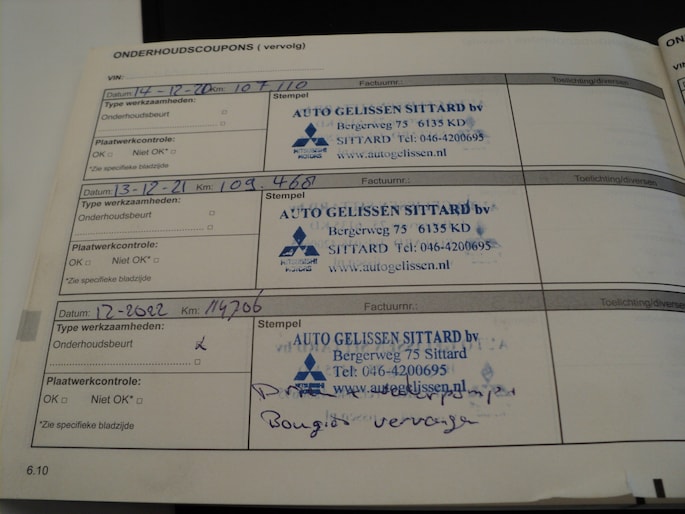 ONDERHOUDSCOUPONS ( vervolg)
VIN:
Datum: 14-12-20 Km: 107.110 Factuurnr.: Toelichting/diversen
Type werkzaamheden:
Onderhoudsbeurt
Plaatwerkcontrole:
OK Niet OK*
*Zie specifieke bladzijde
Stempel
AUTO GELISSEN SITTARD bv
Bergerweg 75 6135 KD
SITTARD Tel: 046-4200695
www.autogelissen.nl
MITSUBISHI
MOTORS
Datum: 13-12-21 Km: 109.468 Factuurnr.: Toelichting/diversen
Type werkzaamheden:
Onderhoudsbeurt
Plaatwerkcontrole:
OK Niet OK*
*Zie specifieke bladzijde
Stempel
AUTO GELISSEN SITTARD bv
Bergerweg 75 6135 KD
SITTARD Tel: 046-4200695
www.autogelissen.nl
MITSUBISHI
MOTORS
Datum: 12-2022 Km: 114706 Factuurnr.: Toelichting/diversen
Type werkzaamheden:
Onderhoudsbeurt
Plaatwerkcontrole:
OK Niet OK*
*Zie specifieke bladzijde
Stempel
AUTO GELISSEN SITTARD bv
Bergerweg 75 Sittard
Tel: 046-4200695
www.autogelissen.nl
Bougies vervangen
6.10
ON
VIN